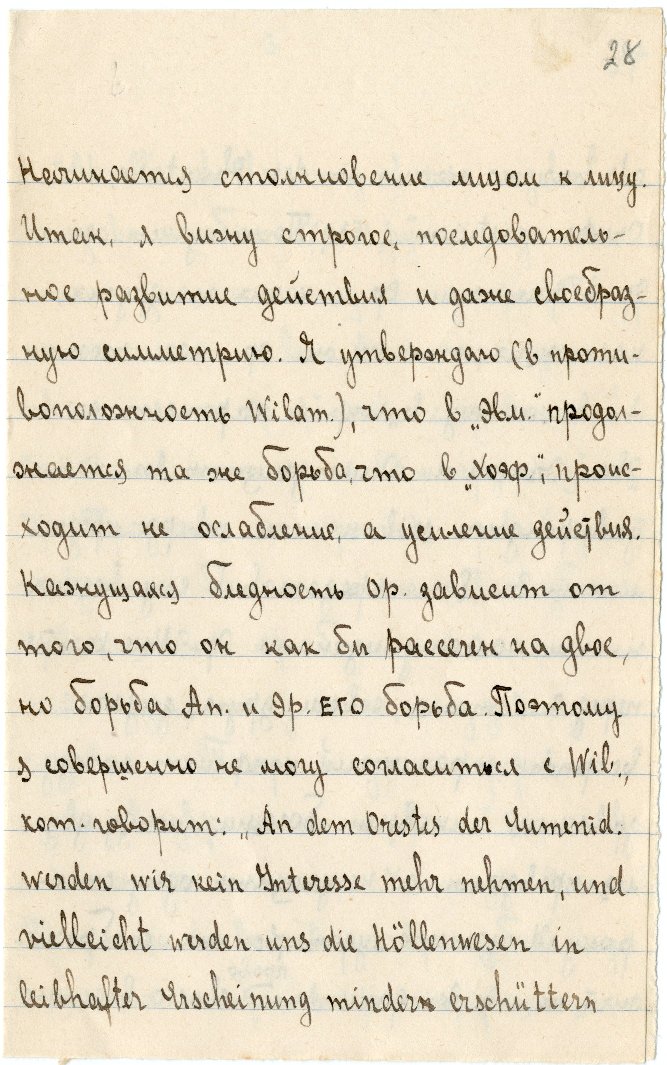 28
Начинается столкновение лицом к лицу.
Итак, я вижу строгое, последователь-
ное развитие действия и даже своебраз-
ную симметрию. Я утверждаю (в проти-
воположность Wilam.), что в „Эвм.“ продол-
жается та же борьба, что в „Хоэф.“, проис-
ходит не ослабление, а усиление действия.
Кажущаяся бледность Ор. зависит от
того, что он как бы рассечен на двое,
но борьба Ап. и Эр. ЕГО борьба. Поэтому
я совершенно не могу согласиться с Wil.,
кот. говорит: „An dem Orestes der Eumenid.
werden wir kein Interesse mehr nehmen, und
vielleicht werden uns die Höllenwesen in
leibhafter Erscheinung mindern erschüttern